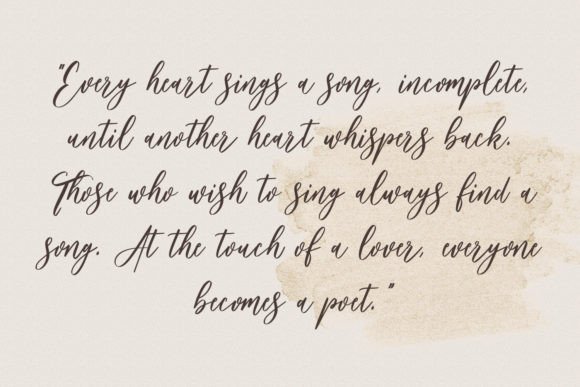 "Every heart sings a song, incomplete,
until another heart whispers back.
Those who wish to sing always find a
song. At the touch of a lover, everyone
becomes a poet."